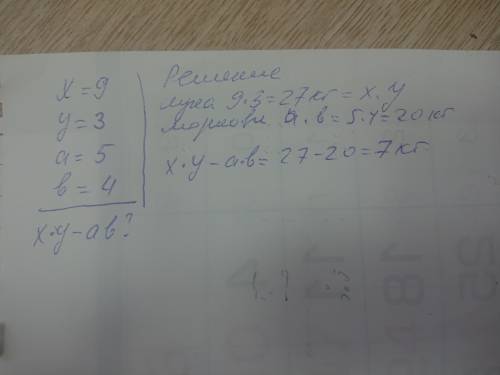 x = 9
y = 3
a = 5
в = 4
x·y – aв?
Решение
лука 9·3=27кг = x·y
моркови a·в=5·4=20кг
x·y – a·в = 27–20=7кг